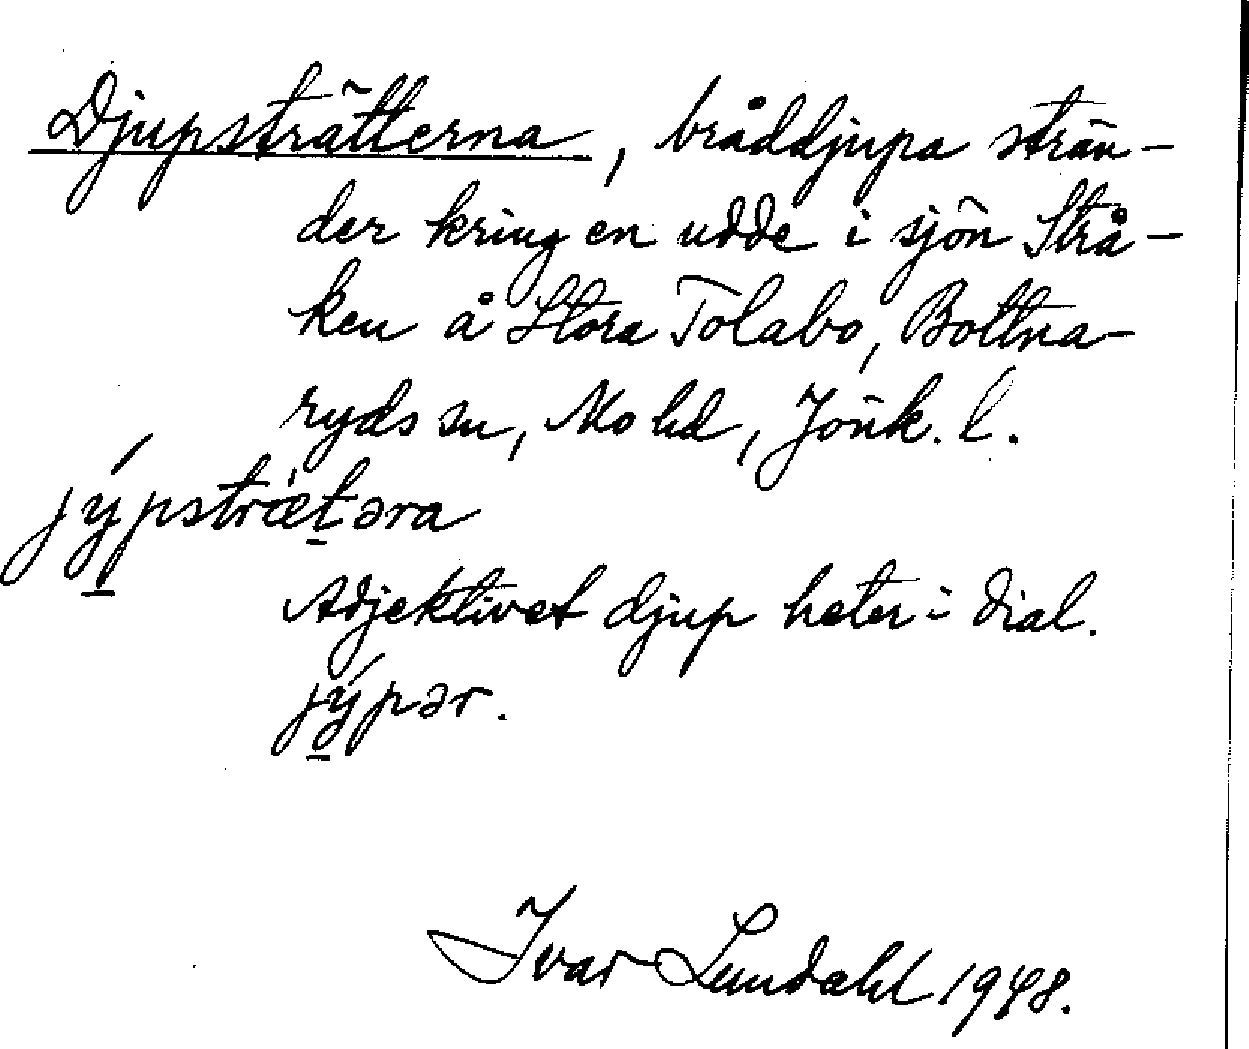 Djupsträtterna, bråddjupa strän-
der kring en udde i sjön Strå-
ken å Stora Tolabo, Bottna-
ryds sn, Mo hd, Jönk. l.
jý̱pstræ̀ṯəra
Adjektivet djup heter i dial.
jý̱pər.
Ivar Lundahl 1948.